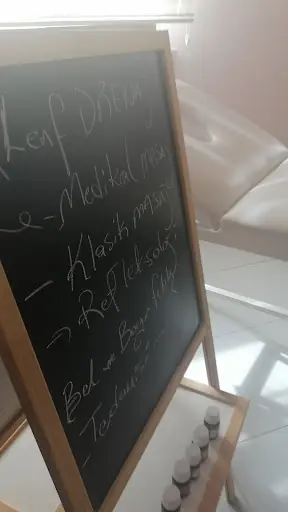 Lenf DRENAJ
- Medikal masaj
- Klasik masaj
→ Refleksoloji
Bel - Boyun fıtığı
Tedavisi